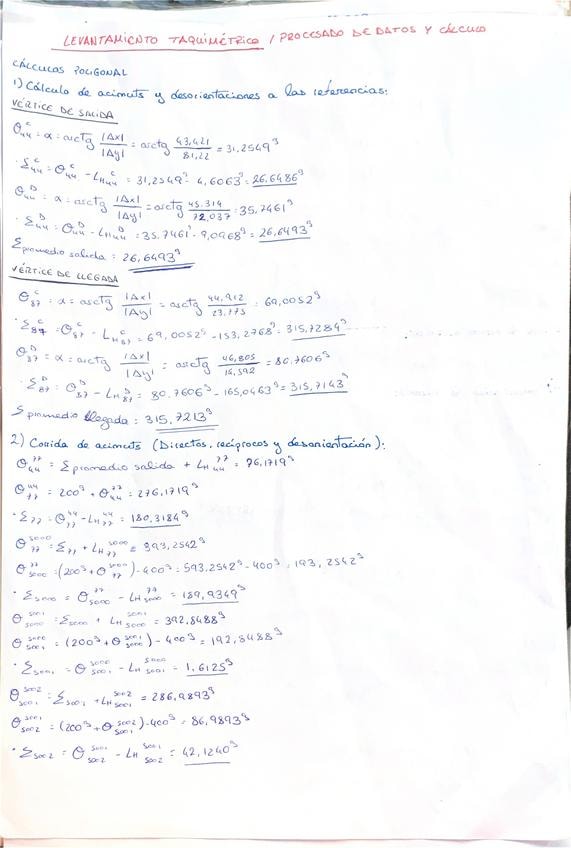 LEVANTAMIENTO TAQUIMÉTRICO / PROCESADO DE DATOS Y CÁLCULO
CÁLCULOS POLIGONAL
1) Cálculo de acimuts y desorientaciones a las referencias:
VÉRTICE DE SALIDA
θ₄₄ᶜ = α = arctg |Δx|/|Δy| = arctg 43,421/81,22 = 31,2549ᵍ
· Σ₄₄ᶜ = θ₄₄ᶜ - LH₄₄ᶜ = 31,2549ᵍ - 4,6063ᵍ = 26,6486ᵍ
θ₄₄ᴰ = α = arctg |Δx|/|Δy| = arctg 45.314/72,037 = 35,7461ᵍ
· Σ₄₄ᴰ = θ₄₄ᴰ - LH₄₄ᴰ = 35.7461ᵍ - 9,0968ᵍ = 26,6493ᵍ
Σ promedio salida = 26,6493ᵍ
VÉRTICE DE LLEGADA
θ₈₇ᶜ = α = arctg |Δx|/|Δy| = arctg 44,912/23,775 = 69,0052ᵍ
· Σ₈₇ᶜ = θ₈₇ᶜ - LH₈₇ᶜ = 69,0052ᵍ - 153,2768ᵍ = 315,7284ᵍ
θ₈₇ᴰ = α = arctg |Δx|/|Δy| = arctg 46,805/14,592 = 80,7606ᵍ
· Σ₈₇ᴰ = θ₈₇ᴰ - LH₈₇ᴰ = 80.7606ᵍ - 165,0463ᵍ = 315,7143ᵍ
Σ promedio llegada = 315,7213ᵍ
2) Corrida de acimuts (Directos, recíprocos y desorientación):
θ₄₄⁷⁷ = Σ promedio salida + LH₄₄⁷⁷ = 76,1719ᵍ
θ₇₇⁴⁴ = 200ᵍ + θ₄₄⁷⁷ = 276,1719ᵍ
· Σ₇₇ = θ₇₇⁴⁴ - LH₇₇⁴⁴ = 180,3184ᵍ
θ₇₇⁵⁰⁰⁰ = Σ₇₇ + LH₇₇⁵⁰⁰⁰ = 393,2542ᵍ
θ₅₀₀₀⁷⁷ = (200ᵍ + θ₇₇⁵⁰⁰⁰) - 400ᵍ = 593,2542ᵍ - 400ᵍ = 193,2542ᵍ
· Σ₅₀₀₀ = θ₅₀₀₀⁷⁷ - LH₅₀₀₀⁷⁷ = 189,9349ᵍ
θ₅₀₀₀⁵⁰⁰¹ = Σ₅₀₀₀ + LH₅₀₀₀⁵⁰⁰¹ = 392,8488ᵍ
θ₅₀₀₁⁵⁰⁰⁰ = (200ᵍ + θ₅₀₀₀⁵⁰⁰¹) - 400ᵍ = 192,8488ᵍ
· Σ₅₀₀₁ = θ₅₀₀₁⁵⁰⁰⁰ - LH₅₀₀₁⁵⁰⁰⁰ = 1,6125ᵍ
θ₅₀₀₁⁵⁰⁰² = Σ₅₀₀₁ + LH₅₀₀₁⁵⁰⁰² = 286,9893ᵍ
θ₅₀₀₂⁵⁰⁰¹ = (200ᵍ + θ₅₀₀₁⁵⁰⁰²) - 400ᵍ = 86,9893ᵍ
· Σ₅₀₀₂ = θ₅₀₀₂⁵⁰⁰¹ - LH₅₀₀₂⁵⁰⁰¹ = 42,1240ᵍ